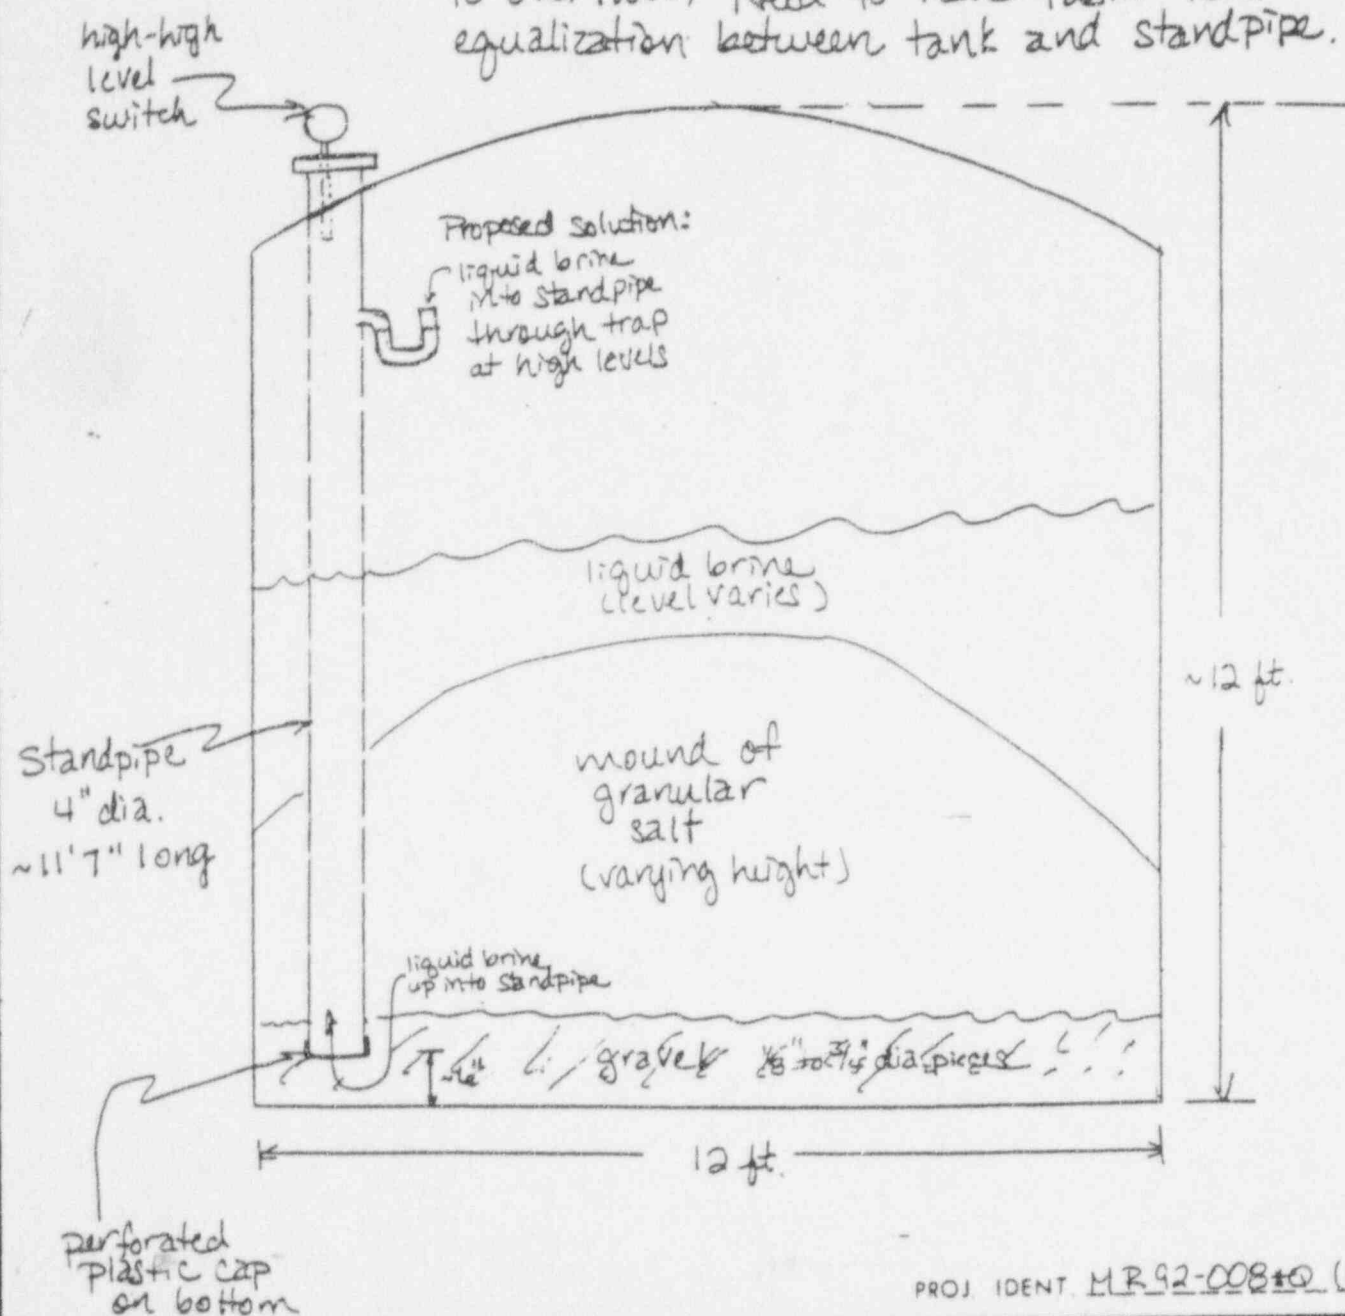 equalization between tank and standpipe.
high-high
level
switch
Proposed solution:
liquid brine
into standpipe
through trap
at high levels
liquid brine
(level varies)
~12 ft.
Standpipe
4" dia.
~11'7" long
mound of
granular
salt
(varying height)
liquid brine
up into standpipe
gravel 1/8" to 3/4" dia. pieces
12 ft.
perforated
plastic cap
on bottom
PROJ. IDENT. MR92-008